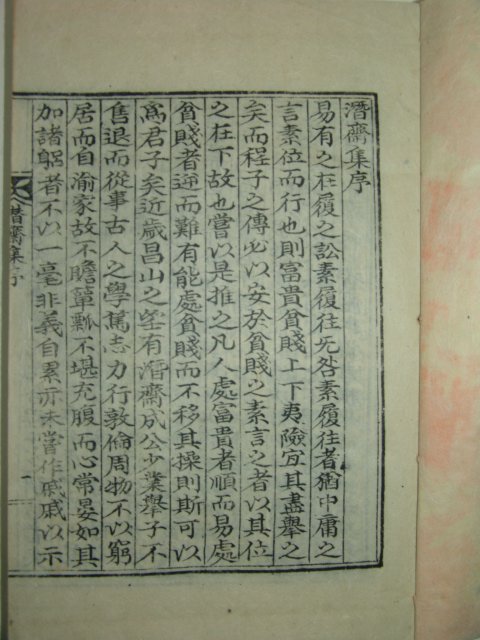 潛齋集序
易有之在履之訟素履往无咎素履往者猶中庸之
言素位而行也則富貴貧賤上下夷險宜其盡舉之
矣而程子之傳必以安於貧賤之素言之者以其位
之在下故也嘗以是推之凡人處富貴者順而易處
貧賤者逆而難有能處貧賤而不移其操則斯可以
爲君子矣近歲昌山之望有潛齋成公少業舉子不
售退而從事古人之學篤志力行敦倫周物不以窮
居而自渝家故不贍簞瓢不堪充腹而心常晏如其
加諸躬者不以一毫非義自累亦未嘗作戚戚以示
潛齋集序
一